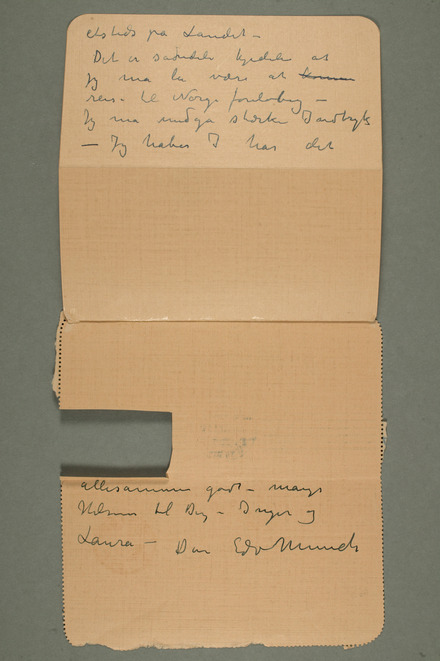 etsteds på Landet –
Det er særdeles kjedeligt at
jeg må la være at komme
reise til Norge foreløbig –
Jeg må undgå stærke Indtryk
– Jeg håber I har det
allesammen godt – mange
Hilsener til Dig – Inger og
Laura – Din Edv Munch